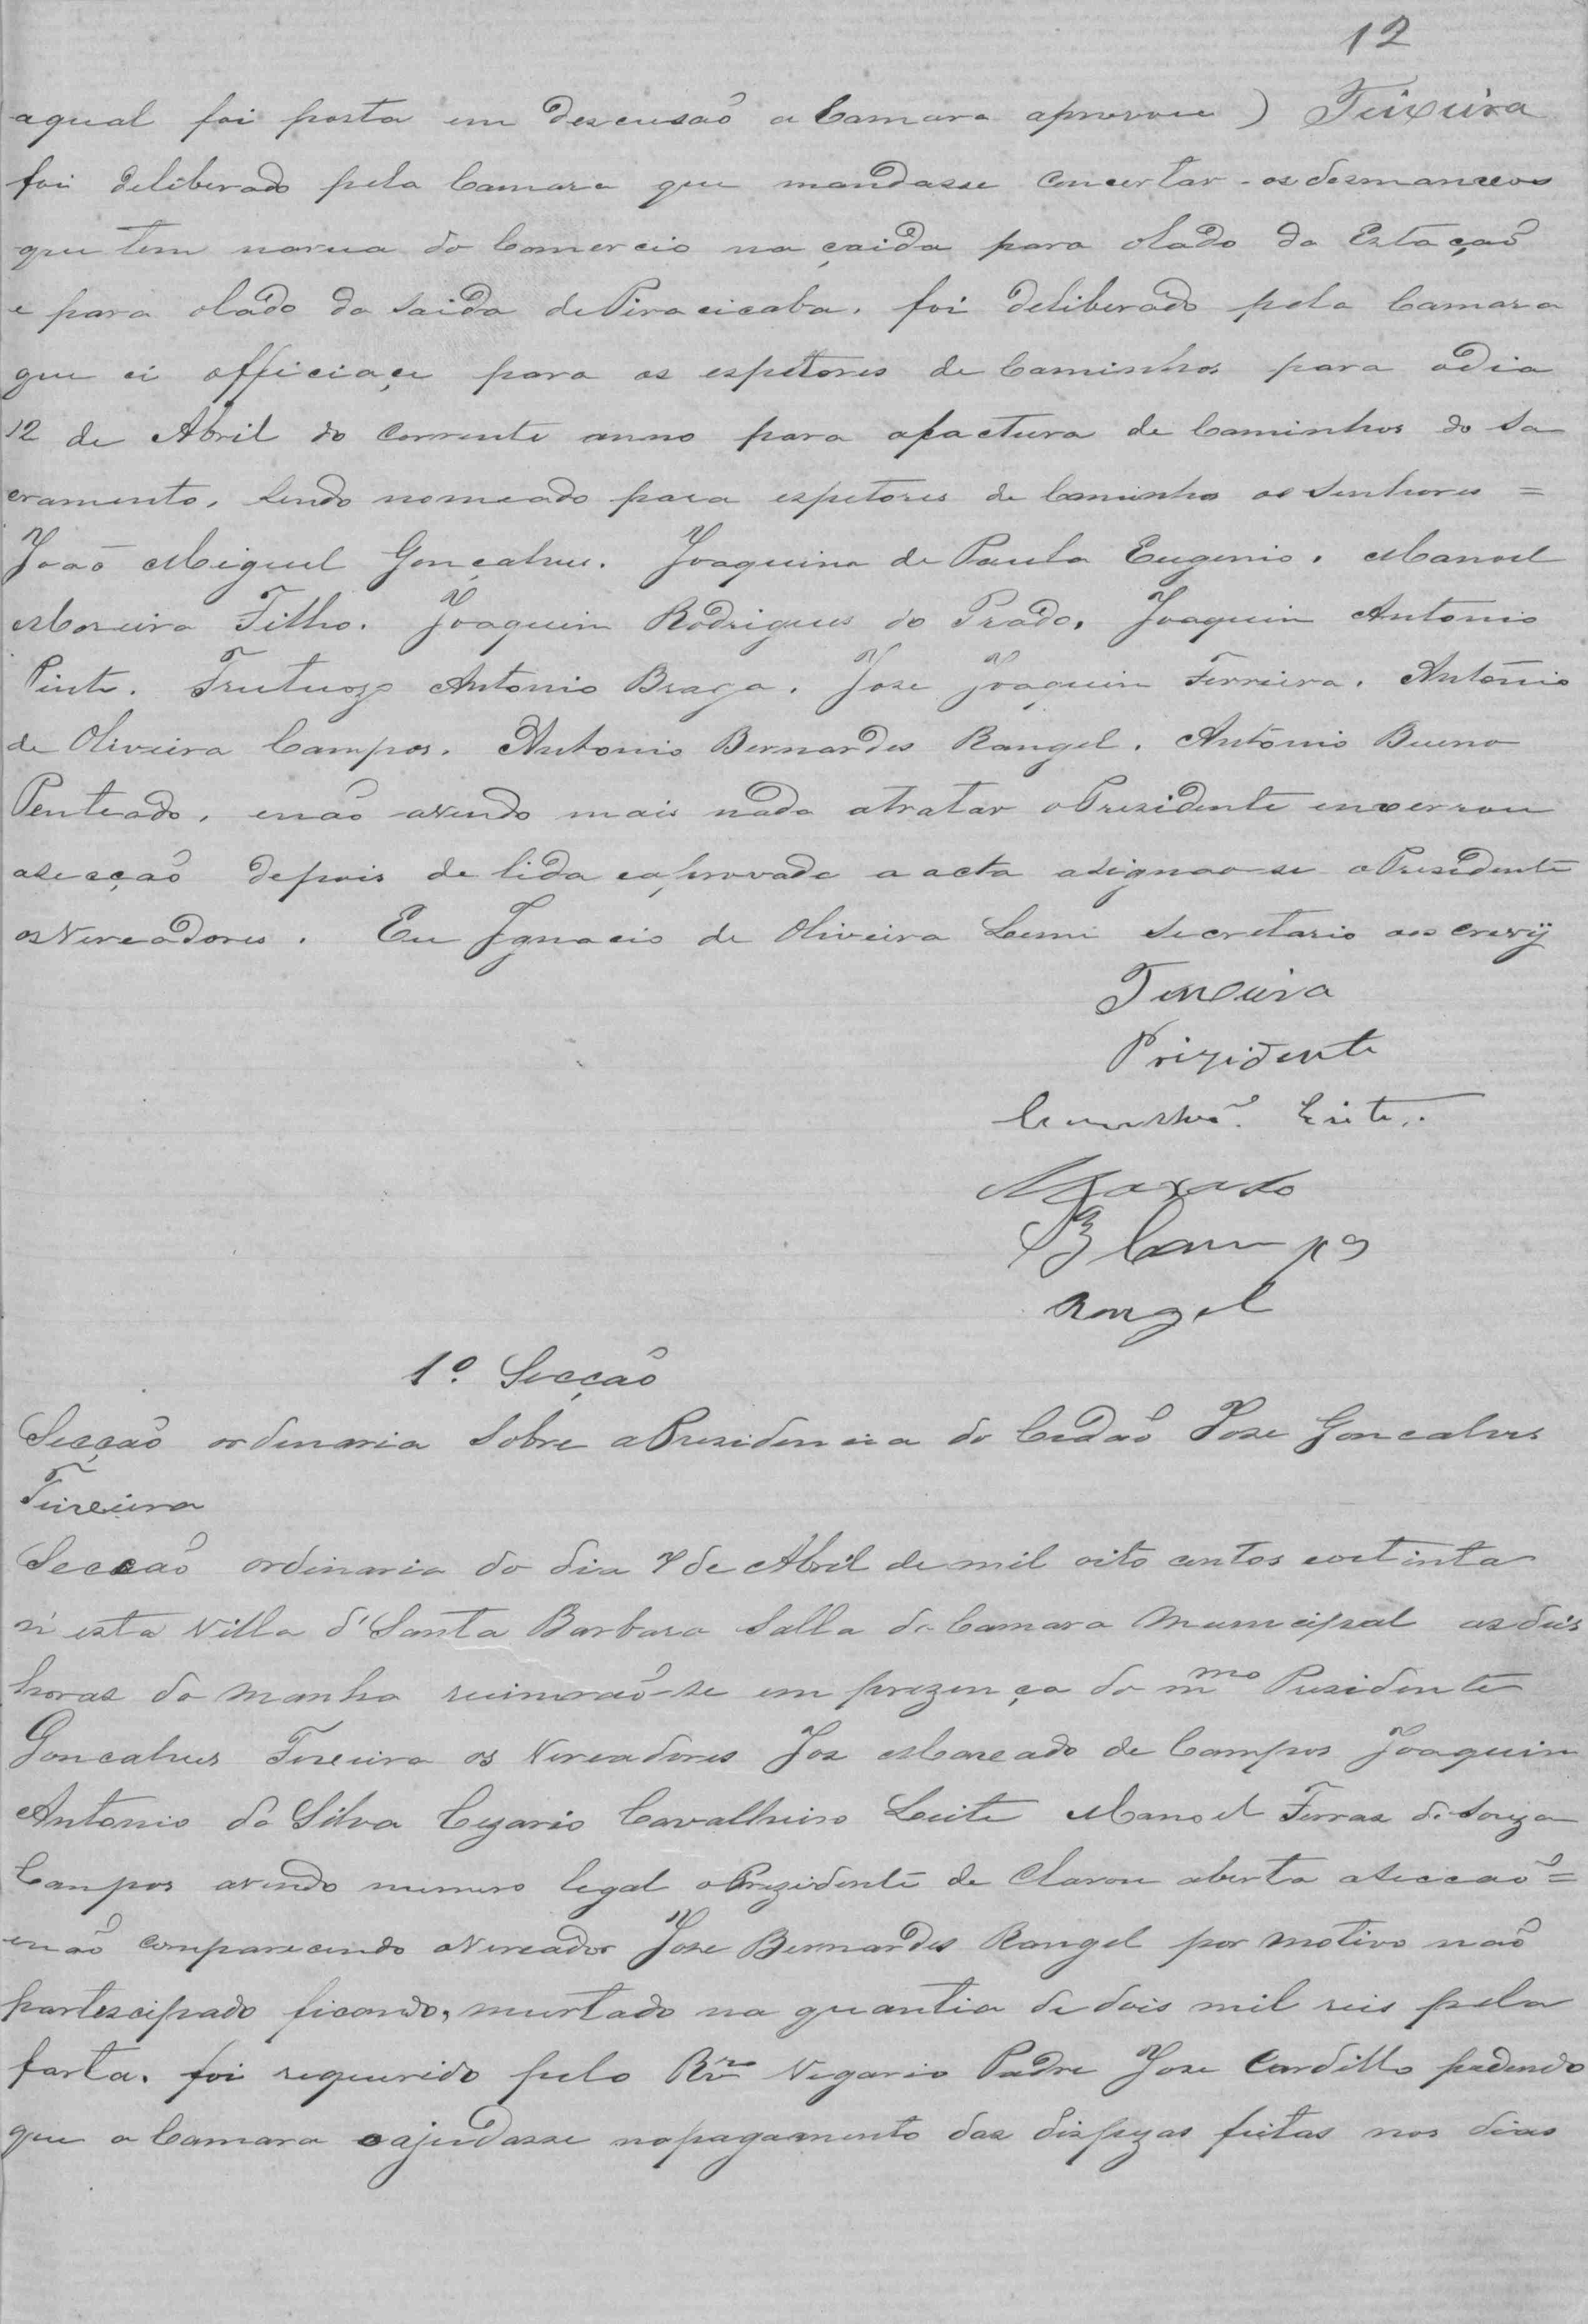 12
aqual foi posta em descusaõ a Camara aprovou ) Teixeira
foi deliberado pela Camara que mandasse concertar os desmanxos
que tem narua do Comercio na çaida para olado da Estaçaõ
e para olado da saida dePiracicaba. foi deliberado pela Camara
que ci officiaçe para os espetores de Caminhos para odia
12 de Abril do corrente anno para afactura de Caminhos do Sa
cramento, sendo nomeado para espetores de Caminho os senhores =
Joaõ Miguel Gonçalves. Joaquim de Paula Eugenio. Manoel
Moreira Filho. Joaquim Rodrigues do Prado. Joaquim Antonio
Pinto. Frutuozo Antonio Braga. Jose Joaquim Ferreira. Antonio
de Oliveira Campos. Antonio Bernardes Rangel. Antonio Bueno
Penteado. enaõ avendo mais nada atratar oPrezidente encerrou
asecçaõ depois de lida eaprovada a acta asignaose oPresidente
osVereadores. Eu Ignacio de Oliveira Leme secretario escrevÿ
Teixeira
Prizidente
Leite.
B Campos
Rangel
1º. Secçaõ
Secçaõ ordenaria Sobre aPresidencia do Cidaõ Jose Goncalves
Teixeira
Seccaõ ordinaria do dia 7 de Abril de mil oito centos eoitinta
n'esta Villa d'Santa Barbara Salla da Camara Municipal as deis
horas da manha reuniraõ-se em prezença do mmo Presidente
Goncalves Texeira os Vereadores Jos Marcado de Campos Joaquim
Antonio da Silva Cezario Cavalheiro Leite Manoel Ferraz de Souza
Campos avendo numero legal oPrezidente de Clarou aberta aseccaõ =
enaõ comparecendo oVereador Jose Bernardes Rangel por motivo naõ
partescipado ficando, murtado na quantia de dois mil reis pela
farta. foi requerido pelo Rmo Vegario Padre Jose Cardillo pedendo
que a Camara oajudasse nopagamento das dispezas feitas nos dias